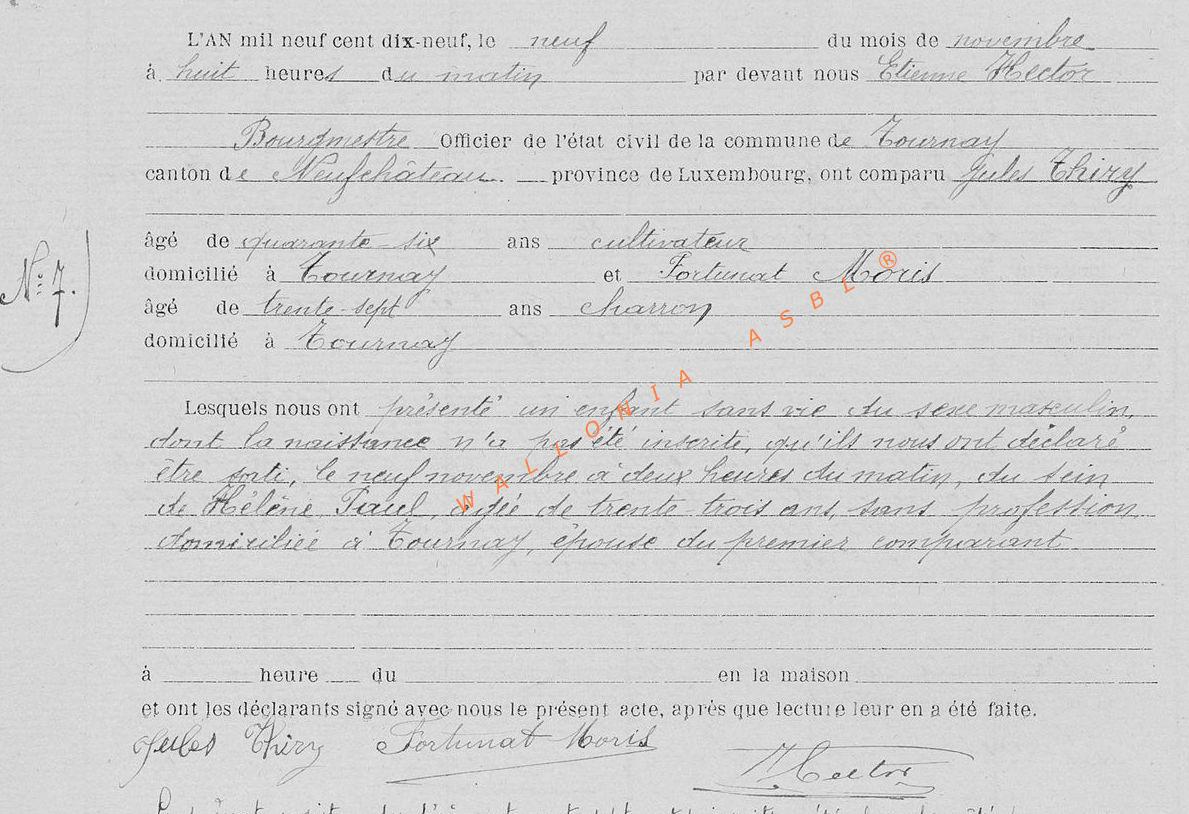 L'AN mil neuf cent dix-neuf, le neuf du mois de novembre
à huit heures du matin par devant nous Etienne Hector
Bourgmestre Officier de l'état civil de la commune de Tournay
canton de Neufchâteau. province de Luxembourg, ont comparu Jules Thiry
âgé de quarante-six ans cultivateur
domicilié à Tournay et Fortunat Moris
âgé de trente-sept ans charron
domicilié à Tournay
Nº 7.
Lesquels nous ont présenté un enfant sans vie du sexe masculin,
dont la naissance n'a pas été inscrite, qu'ils nous ont déclaré
être sorti, le neuf novembre à deux heures du matin, du sein
de Hélène Paul, âgée de trente-trois ans, sans profession,
domiciliée à Tournay, épouse du premier comparant
à heure du en la maison
et ont les déclarants signé avec nous le présent acte, après que lecture leur en a été faite.
Jules Thiry Fortunat Moris Hector
WALLONIA ASBL ®